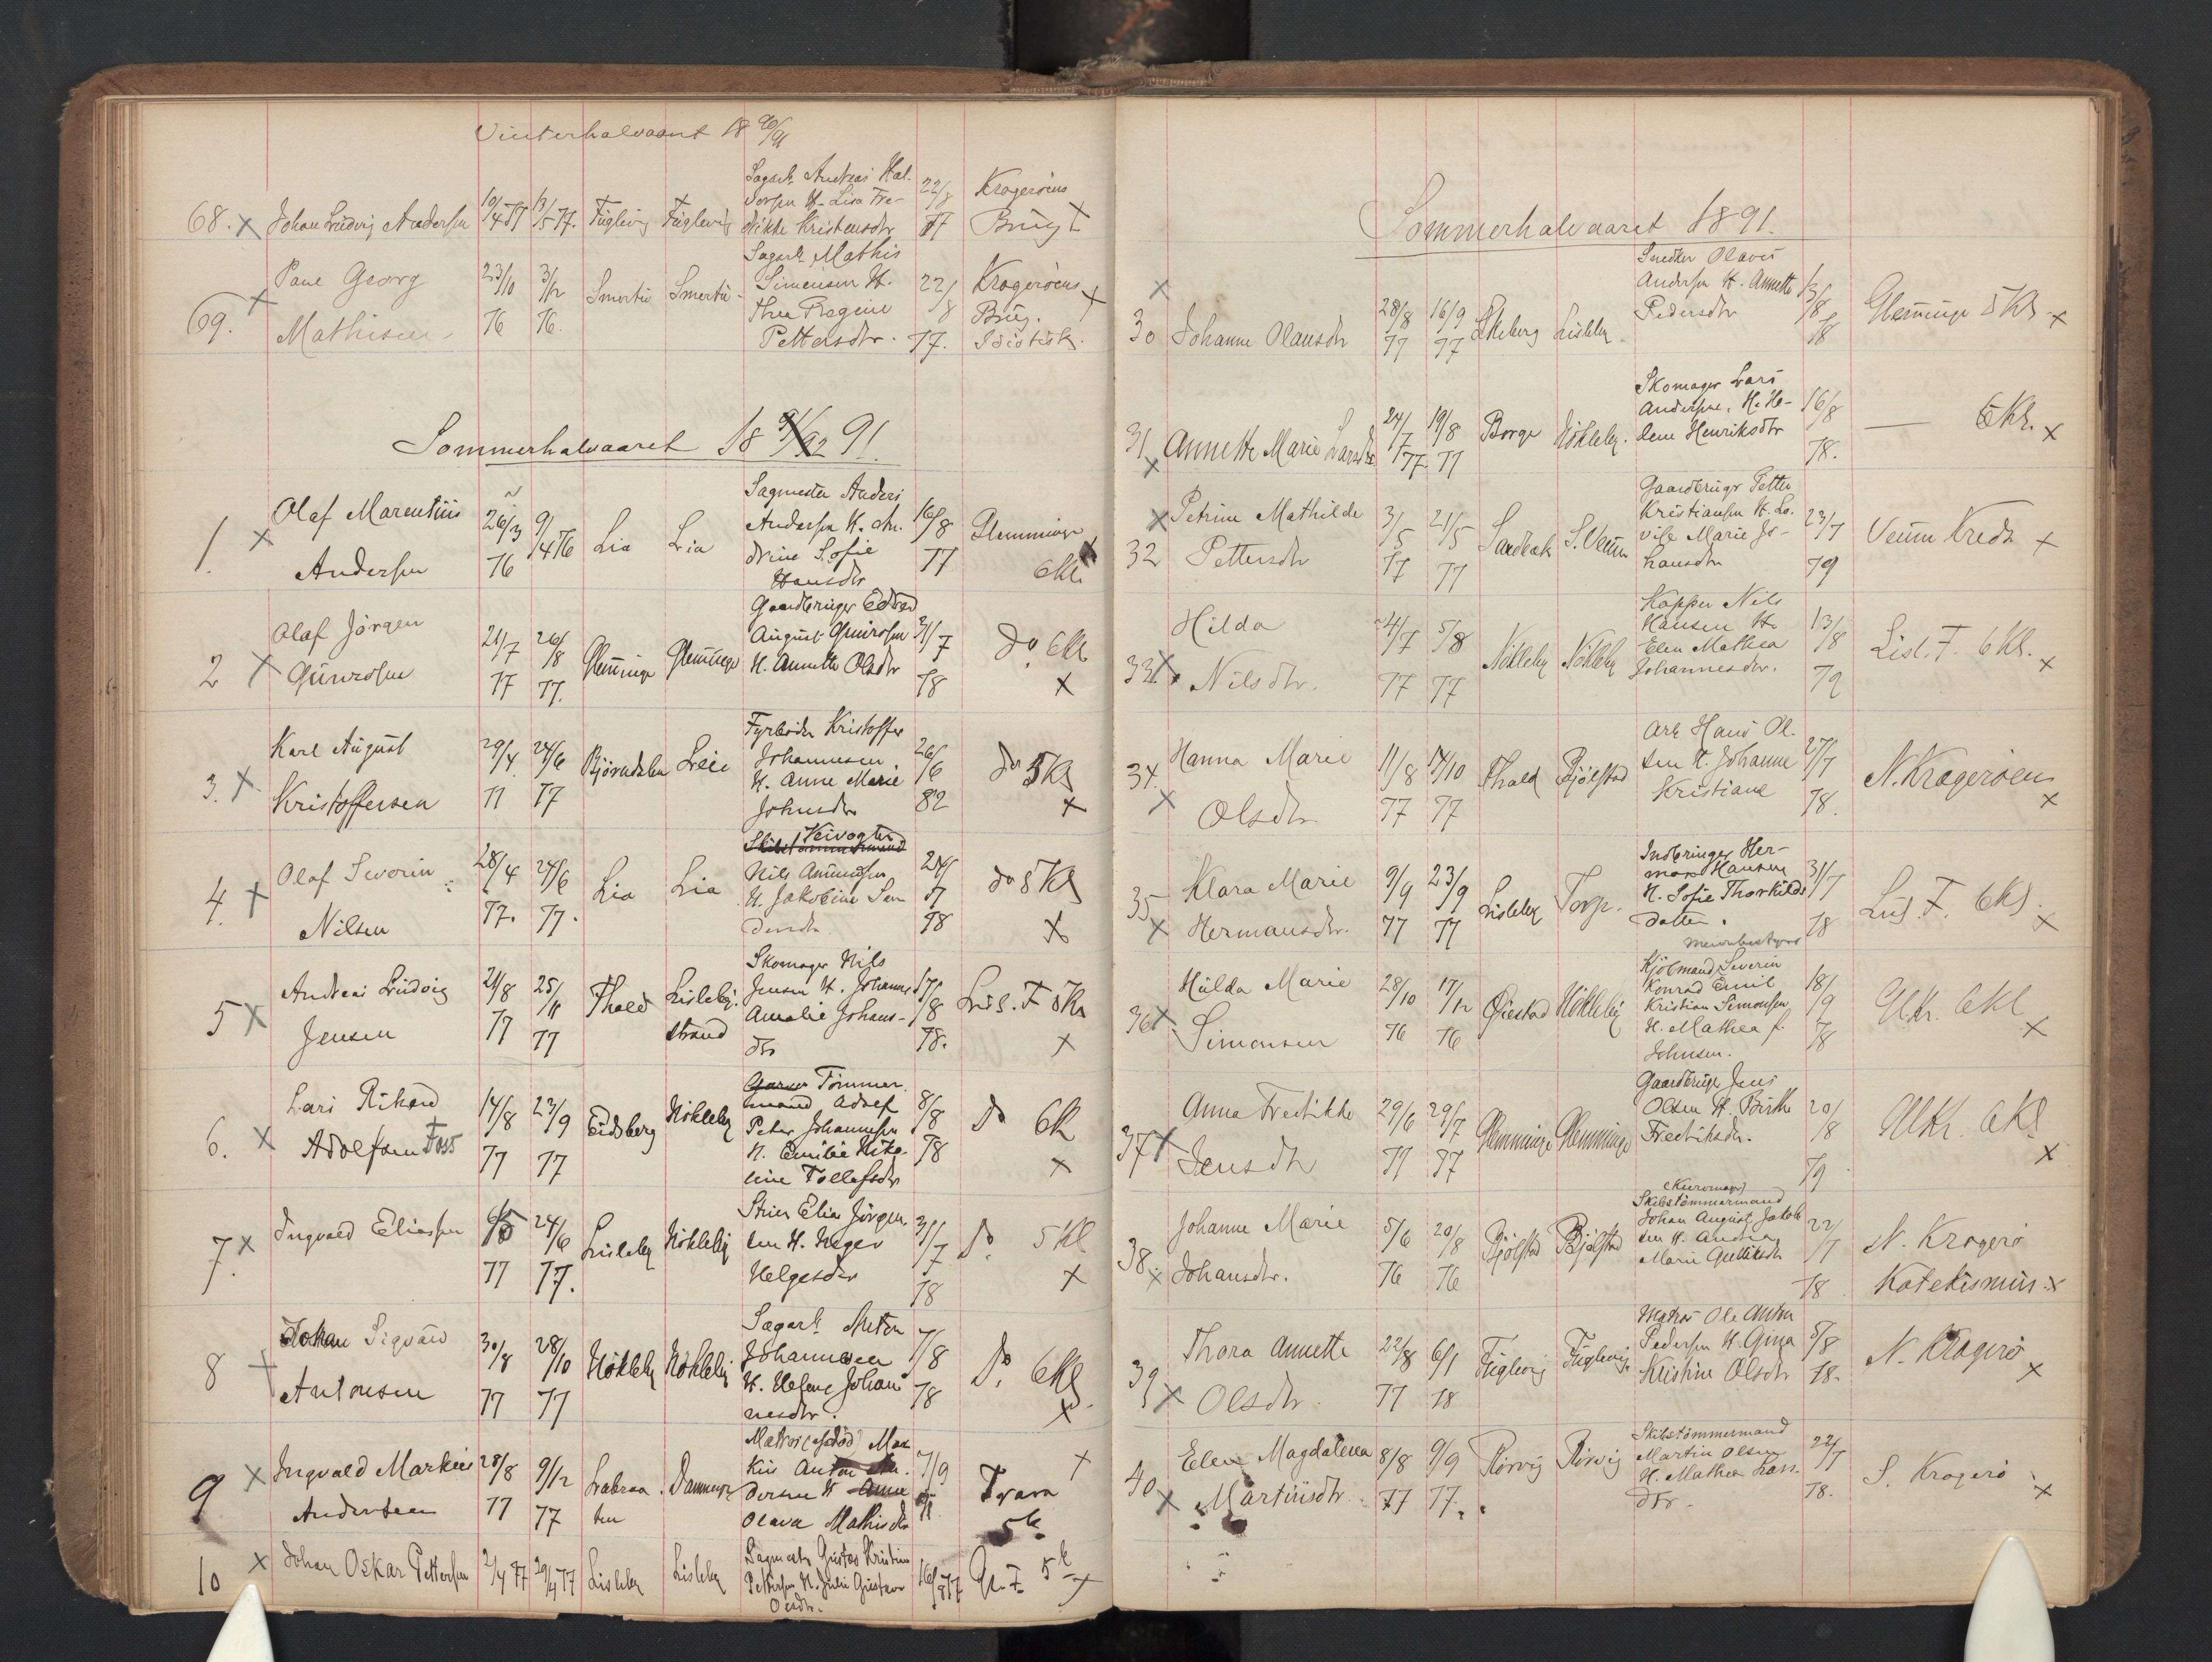 Vinterhalvaaret 18 90/91
68. x Johan Ludvig Andersen 10/4 77 13/5 77. Fuglevig Fuglevig Sagarb. Andreas Hal-
vorsen H. Lisa Fre-
dikke Kristensdtr 22/8 77 Krageröens
Brug x
69. x Paul Georg
Mathisen 23/10 76 3/12 76. Smertu Smertu Sagarb. Mathis
Simensen H.
Thea Regine
Pettersdtr. 22/8 77. Krageröens x
Brug.
Idiotisk.
Sommerhalvaaret 18 91/92 91.
1. x Olaf Marentius
Andersen 26/3 76 9/4 76 Lia Lia Sagmester Anders
Andersen H. An-
drine Sofie
Hansdtr 16/8 77 Glemminge x
6kl.
2 x Olaf Jörgen
21/7 77 26/8 77. Glemminge Glemminge Gaardbruger Edvard
August
H. Annette Olsdtr 31/7 78 do 6kl
x
3. x Karl August
Kristoffersen 29/4 77 24/6 77 Björndalen Leie Fyrböder Kristoffer
Johannesen
H. Anne Marie
Johnsdtr 26/6 82 do 5Kl
x
4. x Olaf Severin
Nilsen 28/4 77. 24/6 77. Lia Lia Skibstömmermand Veivogter
Nils Amundsen
H. Jakobine
78 do 5Kl
x
5 x Andreas Ludvig
Jensen 21/8 77 25/11 77 Thald Lisleby.
strand Skomager Nils
Jensen H. Johanne
Amalie Johans-
dtr 17/8 78. Lisl. F 5Kl
x
6. x Lars Rikard
Adolfsen Foss 14/8 77 23/9 77 Eidsberg Nökleby Tömmer
mand Adolf
Peter Johannesen
H. Emilie
line Tollefsdtr 8/8 78 Do 6kl
x
7. x Ingvald Eliassen 77 24/6 77. Lisleby Nökleby Elias Jörgen-
sen H. Inger
Helgesdtr 31/7 78 Do. 5kl
x
8 x Johan Sigvard
Antonsen 30/8 77 28/10 77 Nökleby Nökleby Sagarb. Anton
Johannesen
H. Helene Johan-
nesdtr. 7/8 78 Do. 6kl.
x
9 x Ingvald Markus
Andersen 28/8 77 9/12 77 Labraa-
ten Matros (afdöd) Mar-
kus Anton An-
dersen H Anne
Olava Mathisdtr 7/9 x
Trara
5kl.
10 x Johan Oskar Pettersen 2/4 77 29/4 77 Lisleby Lisleby Sagmester Gustav Kristian
Pettersen H. Julie Gustava
Olsdtr. 16/8 77 Gl. F. 5kl x
Sommerhalvaaret 1891.
x
30 Johanne Olausdtr 28/8 77 16/9 77 Lisleby Snedker Olaves
Andersen H. Annette
Pedersdtr 13/8 78 Glemminge 5Kl. x
31 x Annette Marie Larsdtr 24/7 77. 19/8 77 Borge Nökleby. Skomager Lars
Andersen, H. He-
lene Henriksdtr 16/8 78. — 6Kl. x
x
32 Petrine Mathilde
Pettersdtr 3/5 77 21/5 77 Sandbak S. Veum Gaardbruger Petter
Kristiansen H. Lo-
vise Marie Jo-
hansdtr 23/7 79 Veum Kreds x
33 x Hilda
Nilsdtr. 24/7 77 5/8 77 Nökleby Nökleby Kapper Nils
Hansen H.
Elen Mathea
Johannesdtr. 13/8 79 Lisl. F. 6kl.
x
34. x Hanna Marie
Olsdtr 11/8 77 14/10 77 Thald Bjölstad Arb. Hans Ol-
sen H. Johanne
Kristiane 27/7 78. N. Krageröen
x
35 x Klara Marie
Hermansdtr. 9/9 77 23/9 77 Lisleby Torp. Indbringer Her-
man Hansen
H. Sofie Thorkilds
datter. 31/7 78 Lisl. F. 6kl.
x
36 x Hulda Marie
Simonsen 28/10 76 17/12 76 Öiestad Nökleby Kjöbmand Severin
Konrad Emil
Kristian Simonsen
H. Mathea f.
Johnsen. 18/9 78 Glkr. 6kl
x
37 x Anna Fredrikke
Jensdtr 29/6 77 29/7 77 Glemminge Glemminge Gaardbruger Jens
Olsen H. Birthe
Fredriksdtr. 20/8 79 Glkr. 6kl
x
38. x Johanne Marie
Johansdtr. 5/6 76 20/8 76 Bjölstad Bjölstad Skibstömmermand
Johan August Jakob-
sen H. Andrea
Marie Gulliksdtr 22/7 78 N. Kragerö
Katekismus. x
39 x Thora Annette
Olsdtr. 22/8 77 6/1 78 Fuglevig Fuglevig. Matros Ole Anton
Pedersen H. Gina
Kristine Olsdtr 5/8 78. N. Kragerö
x
40 x Elen Magdalena
Martinsdtr. 8/8 77 9/9 77. Rörvig Rörvig Skibstömmermand
Martin Olsen
H. Mathea Lars-
dtr. 22/7 78. S. Kragerö
x